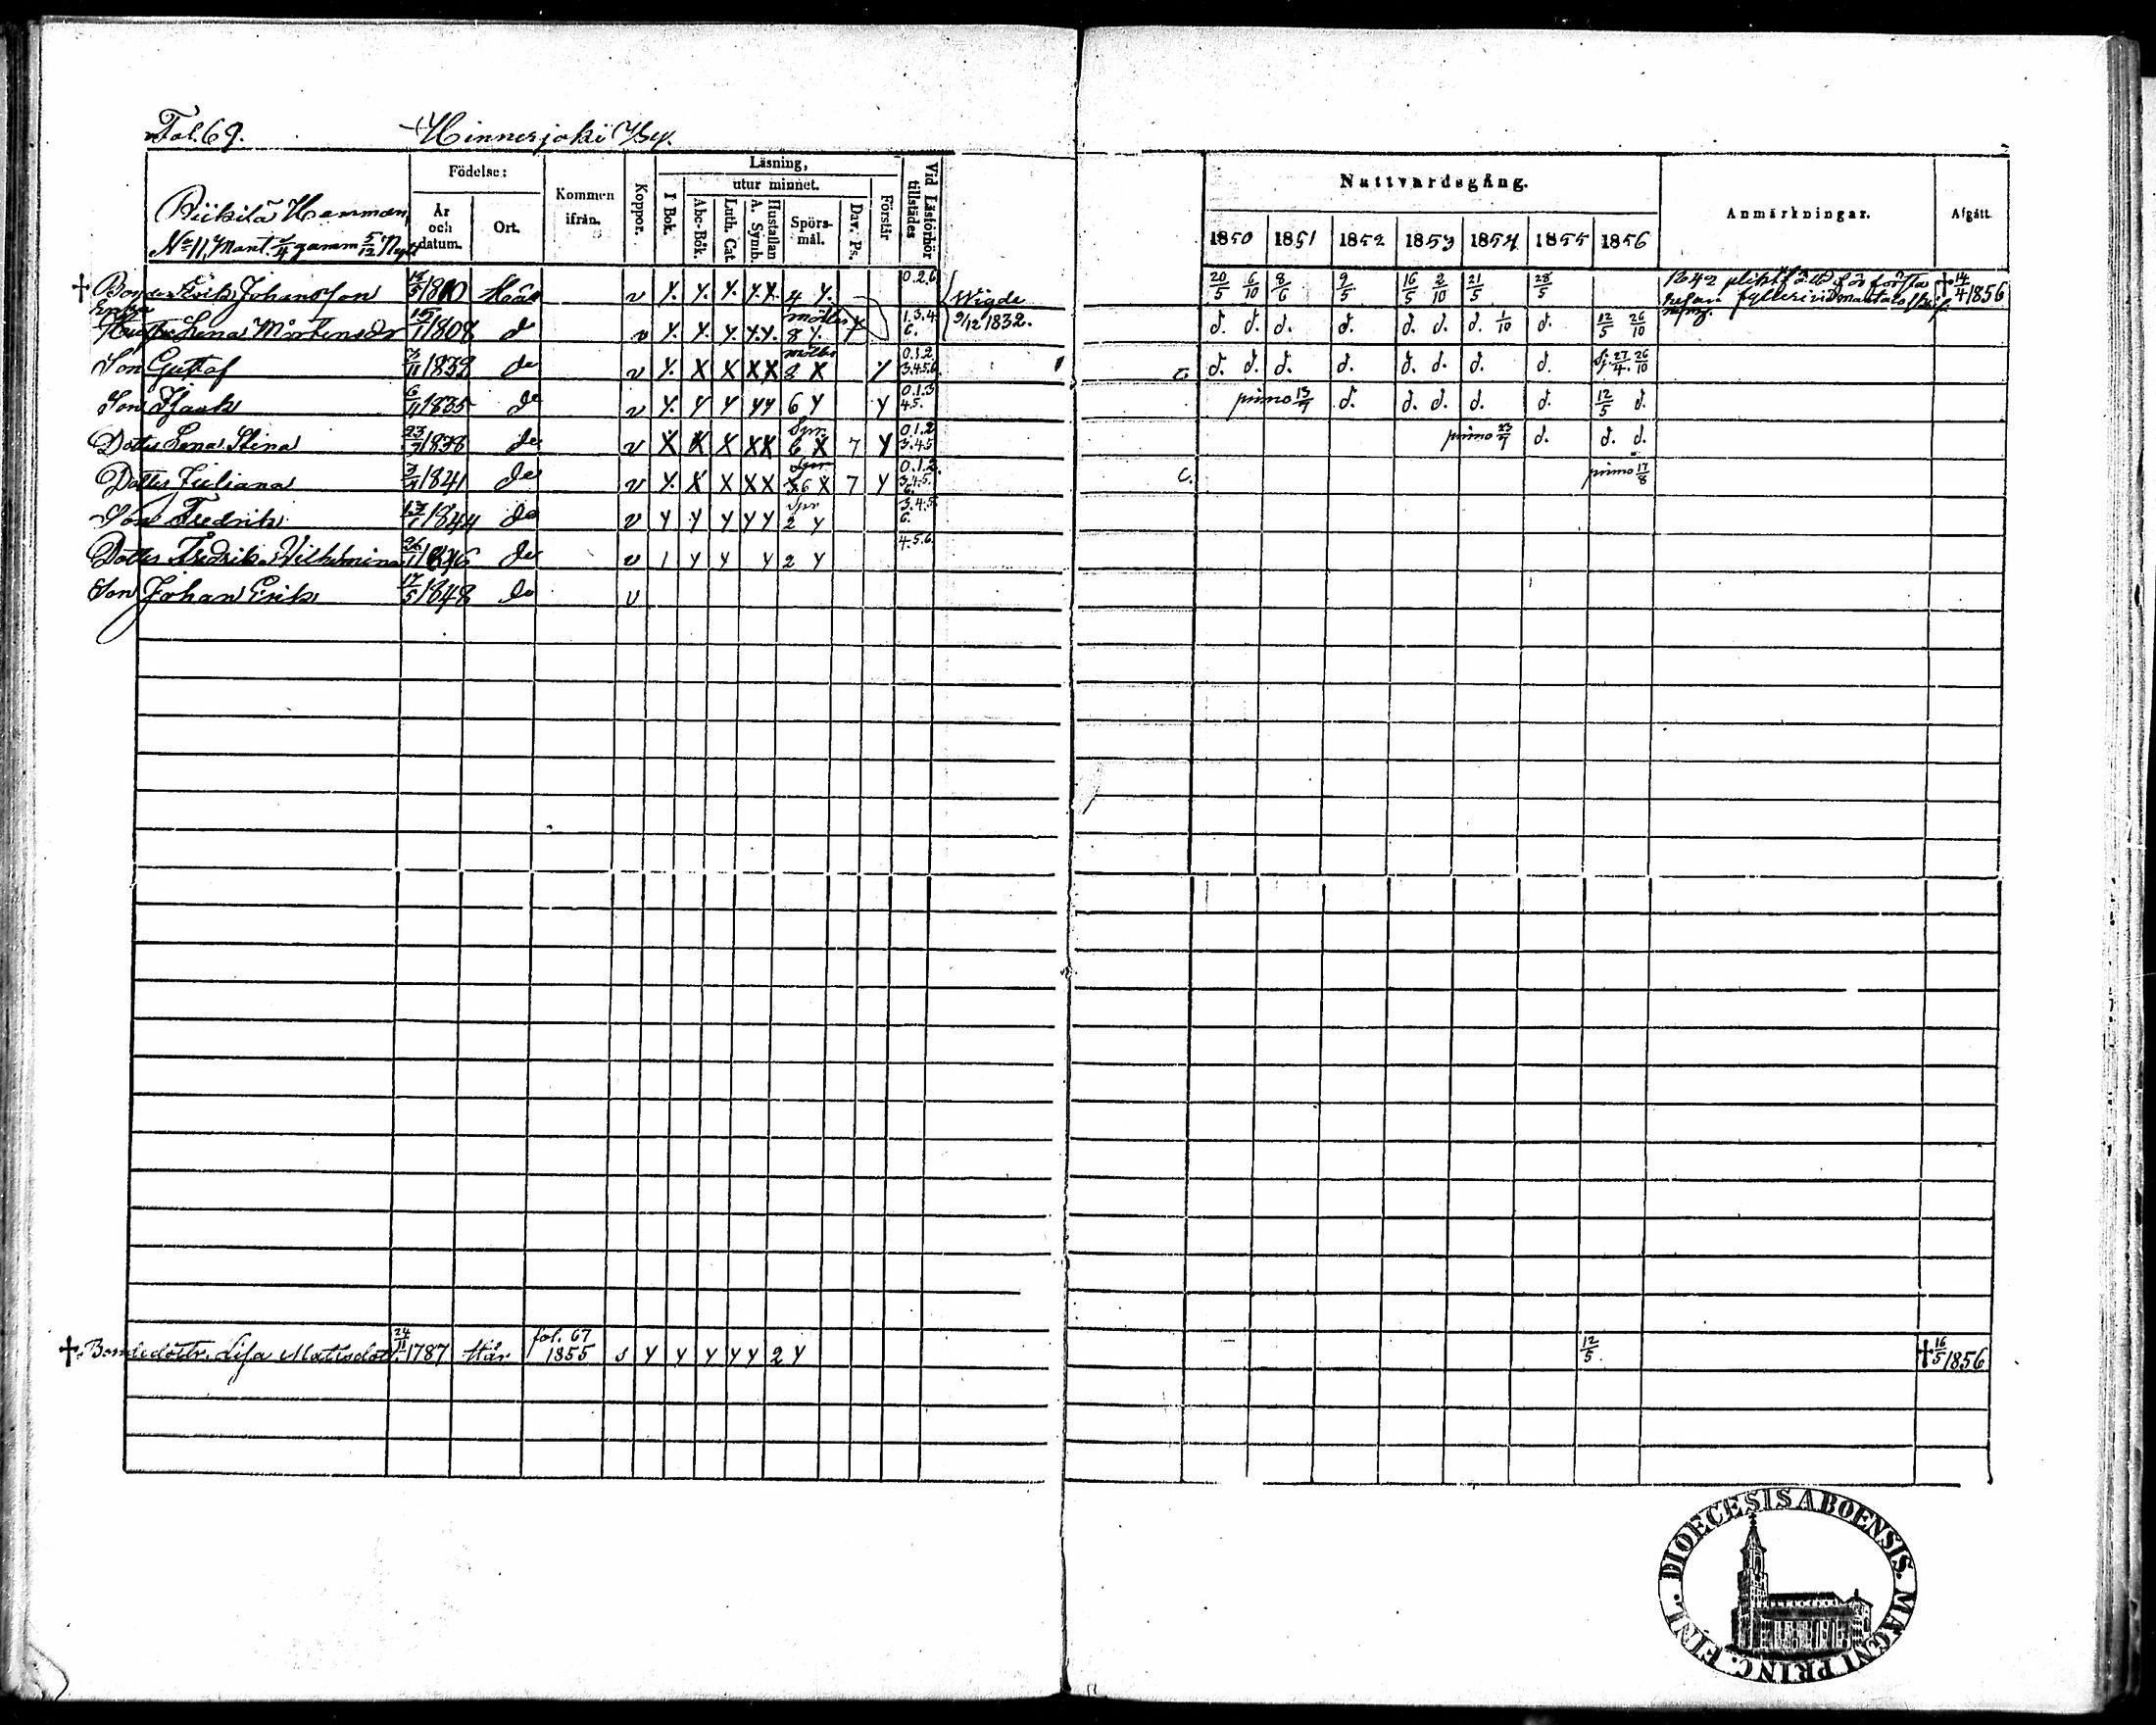 Fol. 69. Hinnerjoki By.
Födelse: Kommen ifrån. Koppor. Läsning, Vid Läsförhör tillstädes
I Bok. utur minnet. Förstår
År och datum. Ort. Abc-Bok. Luth. Cat. Hustaflan A. Symb. Spörsmål. Dav. Ps.
Nattvardsgång. Anmärkningar. Afgått.
1850 1851 1852 1853 1854 1855 1856
No 11, Mant. 3/4 gamm 5/12 Nytt
† Bonden Erik Johansson 18/5 1810 v y. y. y. y.y. 4 y. 0.2.6 20/5 6/10 8/6 9/5 16/5 2/10 21/5 28/5 † 14/4 1856
Enka
Hustru Lena Mårtensdr 15/1 1808 do v y. y. y. y.y. 8 y. 1.3.4 6. Wigde 9/12 1832. d. d. d. d. d. d. d. 1/10 d. 12/5 26/10
Son Gustaf do v y. x x x x 8 x y 0.1.2 3.4.5.6. d. d. d. d. d. d. d. d. 27/4. 26/10
Son Isaak 6/11 1835 do v y. y y y y 6 y y 0.1.3 4.5. primo 13/7 d. d. d. d. d. 12/5 d.
Dotter Lena Stina 23/7 1838 do v x x x x x 6 x 7 y 0.1.2 3.4.5 primo 23/7 d. d. d.
Dotter Juliana 1841 do v y. x x x x 6 x 7 y 0.1.2. 3.4.5. 6. C. primo 17/8
Son Fredrik 1844 do v y y y y y 2 y 3.4.5 6.
Dotter Fredrika Vilhelmina 26/1 1846 do v 1 y y y 2 y 4.5.6.
Son Johan Erik 17/5 1848 do v
† Bondedottr. Lisa Matsdotr. 24/11 1787 Här fol. 67 1855 s y y y y y 2 y 12/5. † 16/5 1856
DIOECESIS ABOENSIS. MAGNI PRINC. FINL.